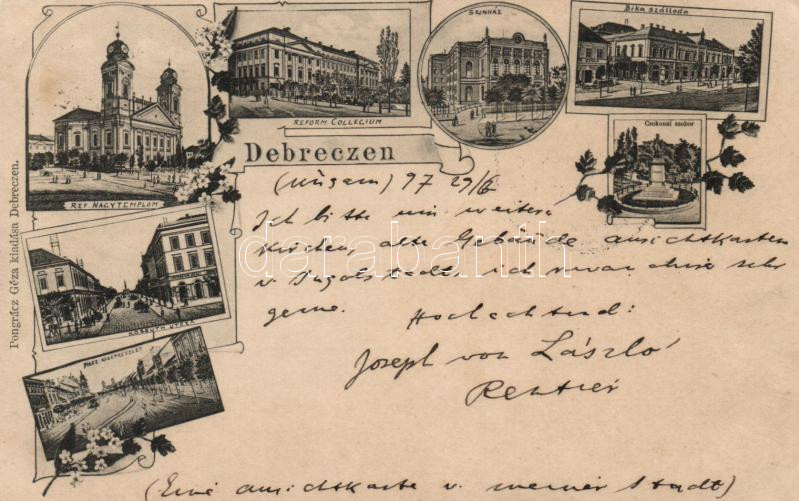 REF. NAGYTEMPLOM
REFORM COLLEGIUM
SZINHÁZ
Bika szálloda
Csokonai szobor
Debreczen
KOSSUTH UTCZA
PIACZ
Pongrácz Géza kiadása Debreczen.
(Ungarn) 97 29/6
Ich bitte um weitere
Kirchen, alte Gebäude ansichtkarten
v Ingolstadt, ich war diese sehr
gerne. Hochachtend:
Joseph von László
Rentier
(Eine ansichtkarte v. meiner Stadt)
darabanth